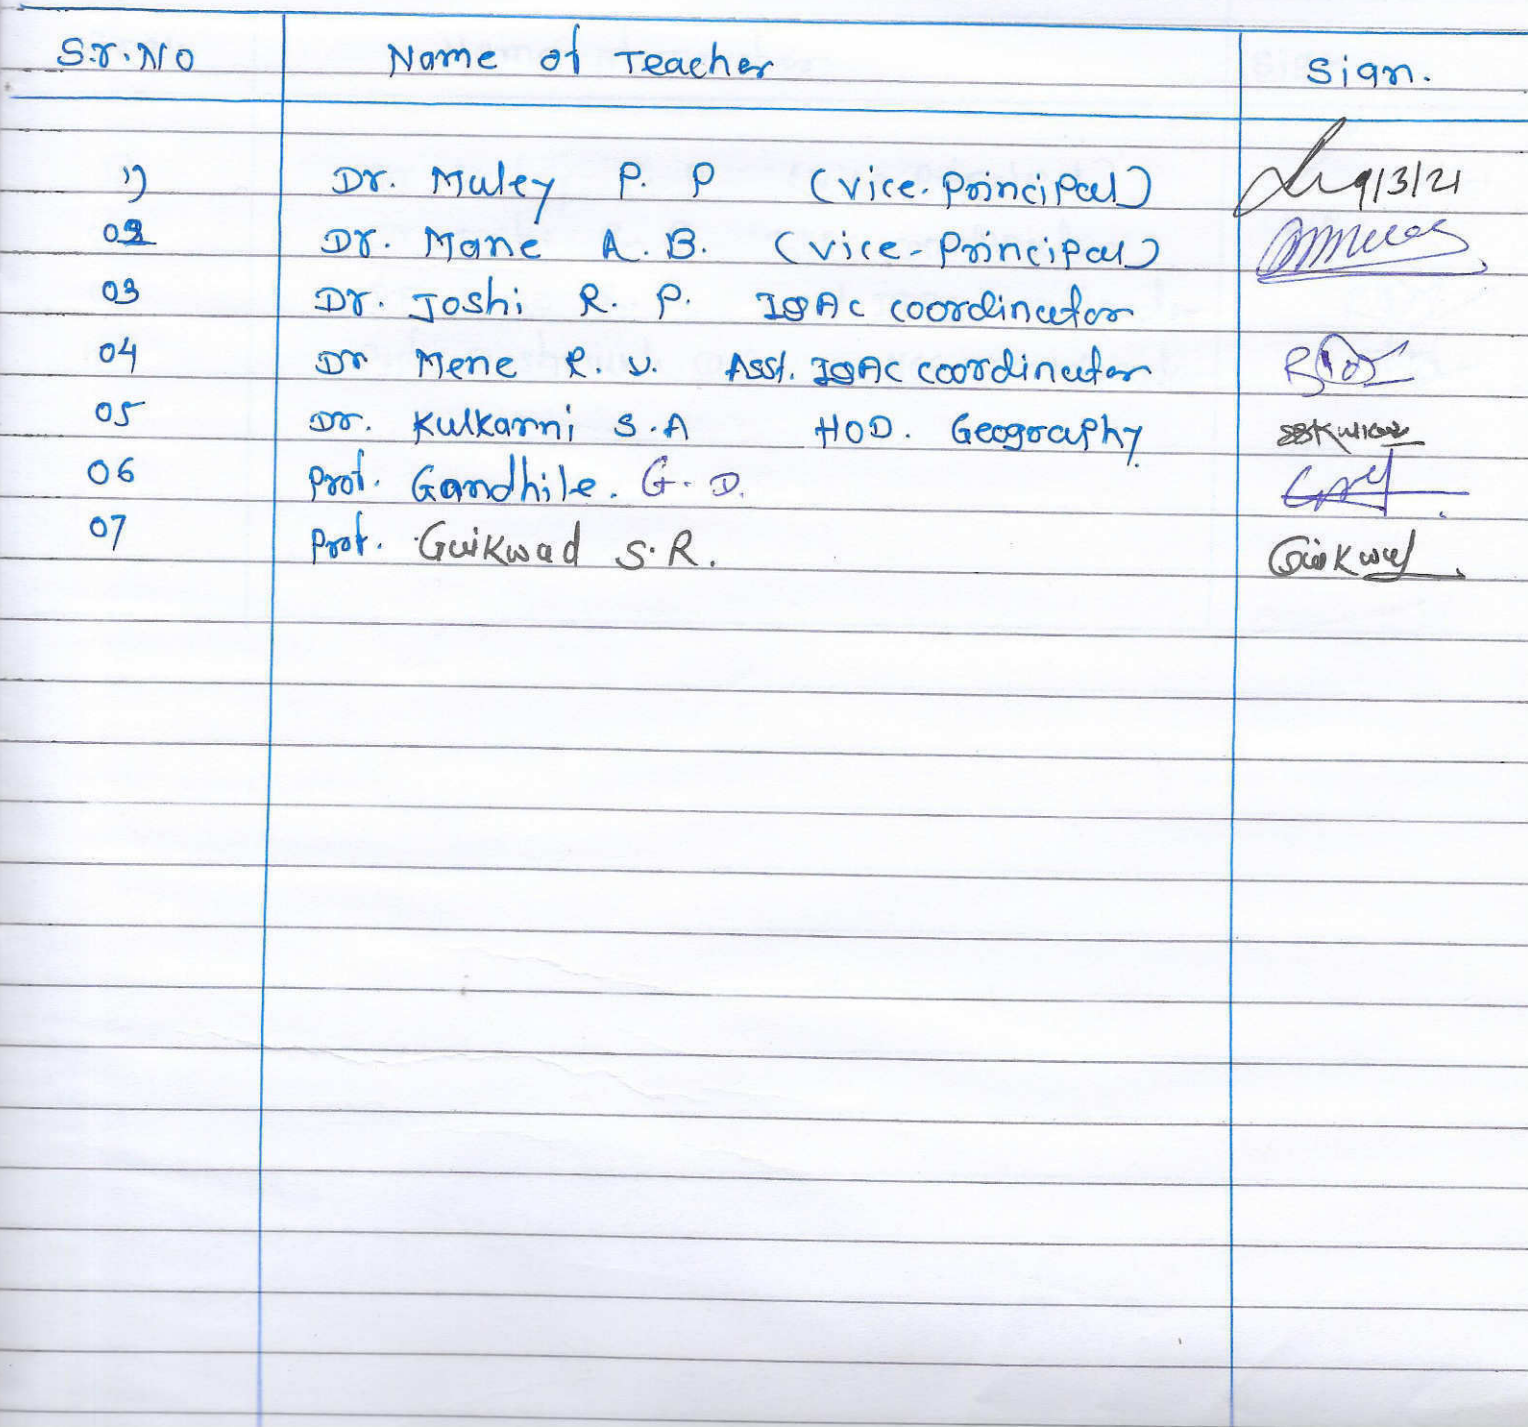 S.r.No Name of Teacher Sign.
1) Dr. Muley P. P (Vice-Principal) 9/3/21
02 Dr. Mane A. B. (Vice-Principal)
03 Dr. Joshi R. P. IQAC coordinator
04 Dr Mene R. V. Asst. IQAC coordinator
05 Dr. Kulkarni S.A HOD. Geography
06 Prof. Gandhile. G. D.
07 Prof. Gaikwad S.R. Gaikwad